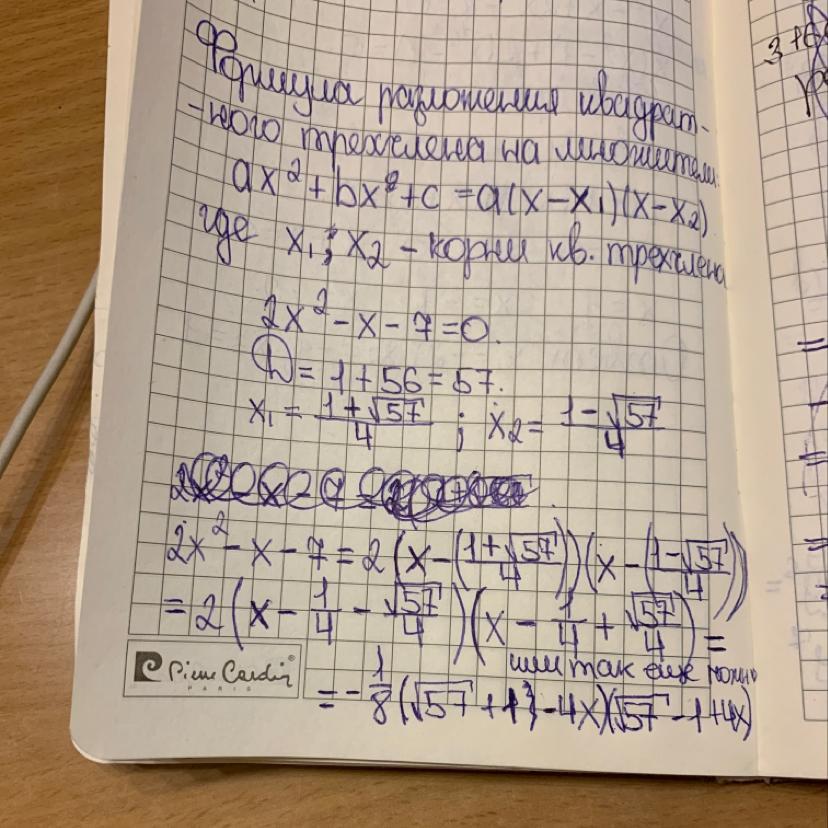 Формула разложения квадрат-
-ного трехчлена на множители:
ax² + bx² + c = a(x - x₁)(x - x₂)
где x₁; x₂ - корни кв. трехчлена
2x² - x - 7 = 0.
D = 1 + 56 = 57.
x₁ = (1 + √57)/4 ; x₂ = (1 - √57)/4
2x² - x - 7 = 2(x - ((1 + √57)/4))(x - ((1 - √57)/4))
= 2(x - 1/4 - √57/4)(x - 1/4 + √57/4) =
или так еще можно
= -1/8(√57 + 1 - 4x)(√57 - 1 + 4x)
Pierre Cardin®
PARIS
3 +